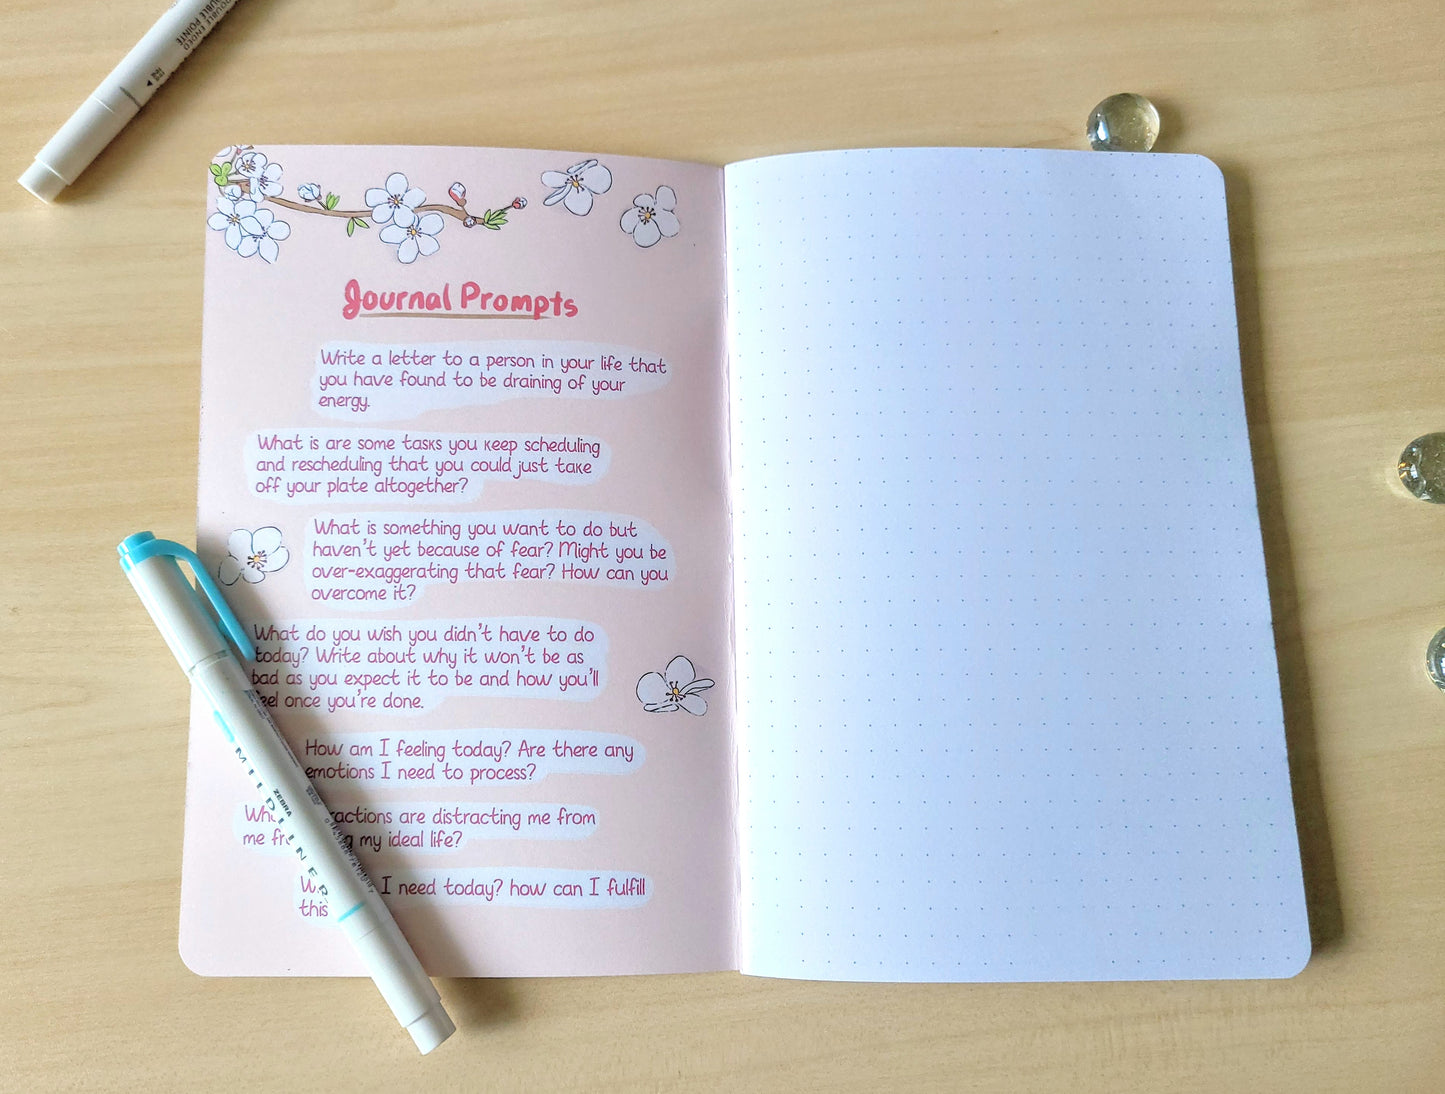 DOUBLE ENDED
DOUBLE POINTE
Journal Prompts
Write a letter to a person in your life that
you have found to be draining of your
energy.
What is are some tasks you keep scheduling
and rescheduling that you could just take
off your plate altogether?
What is something you want to do but
haven't yet because of fear? Might you be
over-exaggerating that fear? How can you
overcome it?
What do you wish you didn't have to do
today? Write about why it won't be as
bad as you expect it to be and how you'll
feel once you're done.
How am I feeling today? Are there any
emotions I need to process?
are distracting me from
me my ideal life?
I need today? how can I fulfill
this
ZEBRA
MILDLINER